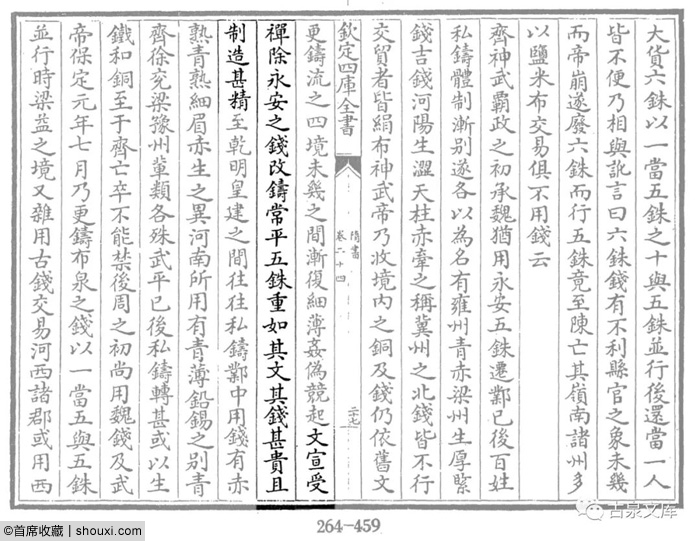 大貨六銖以一當五銖之十與五銖並行後還當一人
皆不便乃相與訛言曰六銖錢有不利縣官之象未幾
而帝崩遂廢六銖而行五銖竟至陳亡其嶺南諸州多
以鹽米布交易俱不用錢云
齊神武霸政之初承魏猶用永安五銖遷鄴已後百姓
私鑄體制漸別遂各以為名有雍州青赤梁州生厚緊
錢吉錢河陽生澀天柱赤牽之稱冀州之北錢皆不行
交貿者皆絹布神武帝乃收境內之銅及錢仍依舊文
欽定四庫全書
隋書
卷二十四
二七
更鑄流之四境未幾之間漸復細薄姦偽競起文宣受
禪除永安之錢改鑄常平五銖重如其文其錢甚貴且
制造甚精至乾明皇建之間往往私鑄鄴中用錢有赤
熟青熟細眉赤生之異河南所用有青薄鉛錫之別青
齊徐兗梁豫州輩類各殊武平已後私鑄轉甚或以生
鐵和銅至于齊亡卒不能禁後周之初尚用魏錢及武
帝保定元年七月乃更鑄布泉之錢以一當五與五銖
並行時梁益之境又雜用古錢交易河西諸郡或用西
264-459
©首席收藏 | shouxi.com
古泉文库